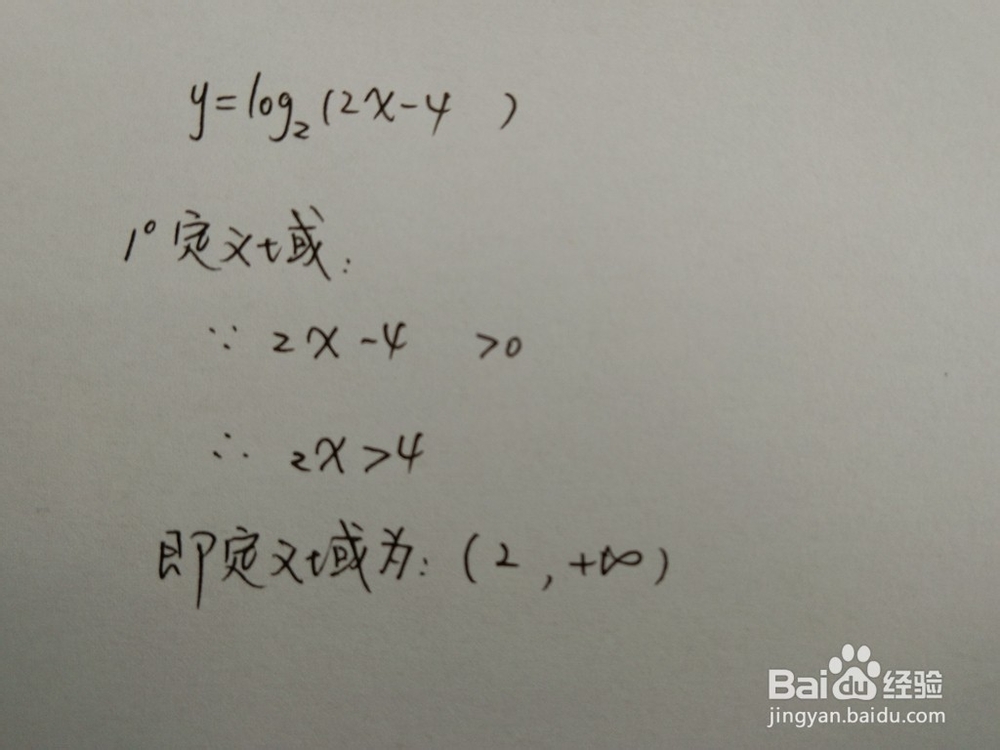 y=log₂(2x-4 )
1°定义域:
∵ 2x-4 >0
∴ 2x>4
即定义域为:(2,+∞)
Baidu经验
jingyan.baidu.com